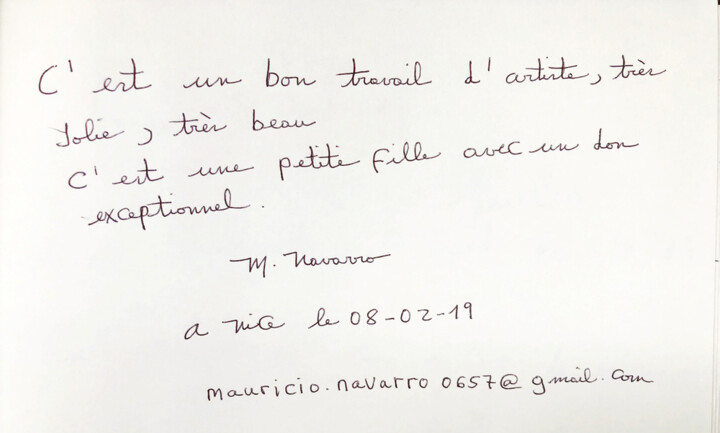 C'est un bon travail d'artiste, très
Jolie, très beau
C'est une petite fille avec un don
exceptionnel.
M. Navarro
a nice le 08-02-19
mauricio.navarro0657@gmail.com